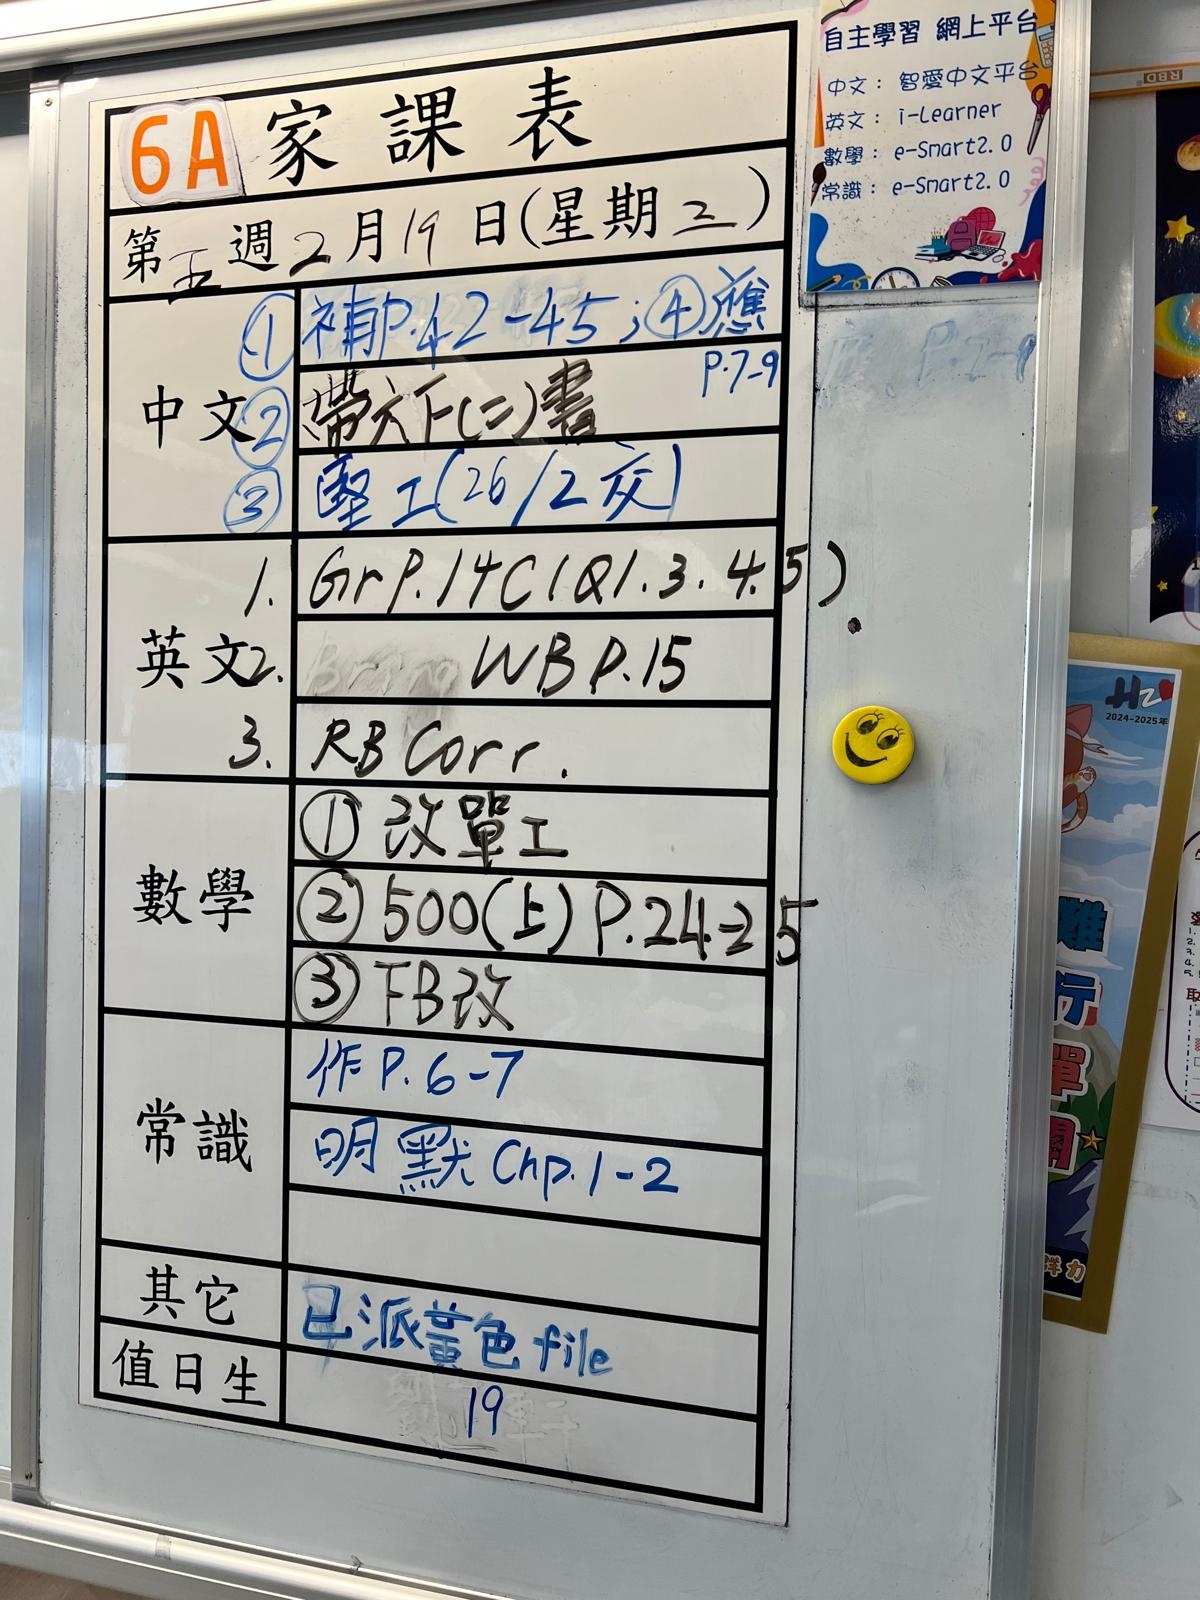 6A 家課表
第五週2月19日(星期三)
中文
① 補P.42-45；④應
P.7-9
② 帶六下(二)書
③ 堅工(26/2交)
英文
1. Gr P.14C (Q1.3.4.5)
2. WB P.15
3. RB Corr.
數學
① 改單工
② 500(上) P.24-25
③ FB改
常識
作P.6-7
明默 Chp.1-2
其它
已派黃色file
值日生
19
自主學習 網上平台
中文： 智愛中文平台
英文： i-Learner
數學： e-Smart2.0
常識： e-Smart2.0
RBD
2024-2025年
難
行
單